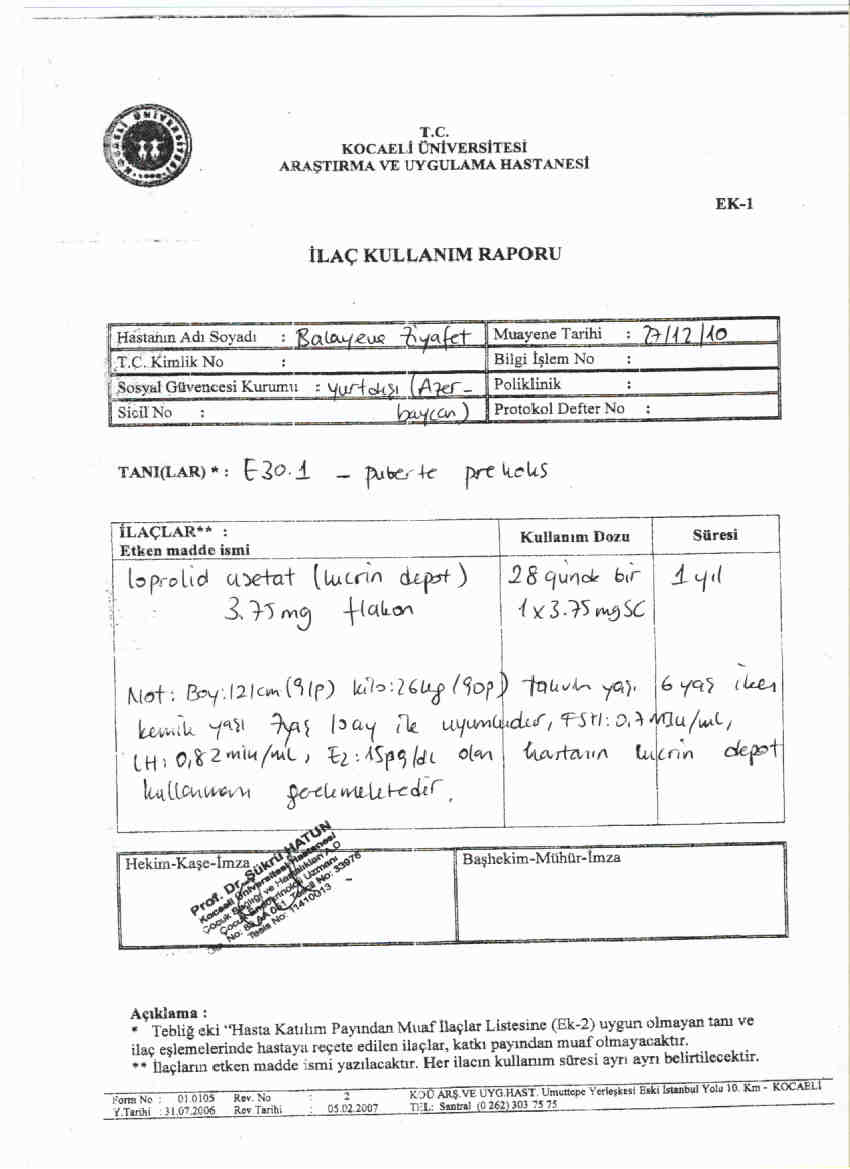 KOCAELİ ÜNİVERSİTESİ
T.C.
KOCAELİ ÜNİVERSİTESİ
ARAŞTIRMA VE UYGULAMA HASTANESİ
EK-1
İLAÇ KULLANIM RAPORU
Hastanın Adı Soyadı : Balayeva Ziyafet Muayene Tarihi : 27/12/10
T.C. Kimlik No : Bilgi İşlem No :
Sosyal Güvencesi Kurumu : yurtdışı (Azer- Poliklinik :
Sicil No : baycan) Protokol Defter No :
TANI(LAR) * : E30.1 - puberte prekoks
İLAÇLAR** :
Etken madde ismi Kullanım Dozu Süresi
loprolid asetat (lucrin depot) 28 günde bir 1 yıl
3.75 mg flakon 1 x 3.75 mg SC
Not: Boy: 121cm (91p) kilo: 26kg (90p) takvim yaşı 6 yaş iken
kemik yaşı 7yaş 10ay ile uyumludur, FSH: 0,7 MIU/mL,
LH: 0,82 miu/mL, E2: 15pg/dl olan hastanın lucrin depot
kullanması gerekmektedir.
Hekim-Kaşe-İmza Başhekim-Mühür-İmza
Prof. Dr. Şükrü HATUN
Kocaeli Üniversitesi Hastanesi
Çocuk Sağlığı ve Hastalıkları A.D
Çocuk Endokrinoloji Uzmanı
Tescil No: 33976
Tesis No: 11410013
Açıklama :
* Tebliğ eki "Hasta Katılım Payından Muaf İlaçlar Listesine (Ek-2) uygun olmayan tanı ve
ilaç eşlemelerinde hastaya reçete edilen ilaçlar, katkı payından muaf olmayacaktır.
** İlaçların etken madde ismi yazılacaktır. Her ilacın kullanım süresi ayrı ayrı belirtilecektir.
Form No : 01.0105 Rev. No : 2 KOÜ ARŞ.VE UYG.HAST. Umuttepe Yerleşkesi Eski İstanbul Yolu 10. Km - KOCAELİ
Y.Tarihi : 31.07.2006 Rev Tarihi : 05.02.2007 TEL: Santral (0 262) 303 75 75